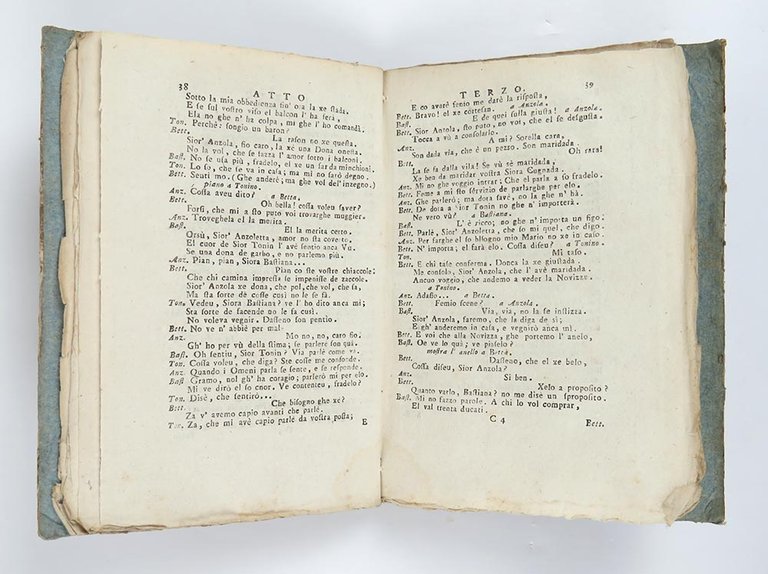 38
ATTO
Sotto la mia obbedienza fin' ora la xe stada.
E se sul vostro viso el balcon l' ha serà,
Ela no ghe n' ha colpa, ma ghe l' ho comandà.
Ton. Perchè? songio un baron?
Bett. La rason no xe questa.
Sior' Anzola, sio caro, la xe una Dona onesta.
No la vol, che se fazza l' amor sotto i balconi.
Bast. No se usa più, fradelo, el xe un far da minchioni.
Ton. Lo so, che se va in casa; ma mi no sarò degno.
Bett. Senti mo. (Ghe anderè; ma ghe vol del' inzegno.)
piano a Tonino.
Anz. Cossa aveu dito? a Betta.
Bett. Oh bella! cossa voleu saver?
Forsi, che mi a sto puto voi trovarghe muggier.
Anz. Troveghela el la merita.
Bast. El la merita certo.
Orsù, Sior' Anzoletta, amor no sta coverto.
El cuor de Sior Tonin l' avè sentio anca Vu.
Se una dona de garbo, e no parlemo più.
Anz. Pian, pian, Siora Bastiana...
Bett. Pian co ste vostre chiaccole:
Che chi camina impressa se impenisse de zaccole.
Sior' Anzola xe dona, che pol, che vol, che sa,
Ma sta sorte de cosse cusì no le se fà.
Ton. Vedeu, Siora Bastiana? ve l' ho dito anca mi;
Sta sorte de facende no le se fa cusì.
No voleva vegnir. Dasseno son pentio.
Bett. No ve n' abbiè per mal.
Anz. Mo no, no, caro fio.
Gh' ho per vù della stima; se parlerè son quì.
Bast. Oh sentiu, Sior Tonin? Via parlè come va.
Ton. Cossa voleu, che diga? Ste cosse me confonde.
Anz. Quando i Omeni parla se sente, e se responde.
Bast. Gramo, nol gh' ha coragio; parlerò mi per elo.
Mi ve dirò el so cuor. Ve contenteu, fradelo?
Ton. Disè, che sentirò...
Bett. Che bisogno ghe xe?
Za v' avemo capio avanti che parlè.
Ton. Za, che mi avè capio parlè da vostra posta;
E
TERZO.
39
E co averè senio me darè la risposta,
a Anzola.
Bett. Bravo! el xe cortesan.
Bast. E de quei sulla giusta! a Anzola.
Bett. Sior Anzola, sto puto, no voi, che el se desgusta.
Tocca a vù a consolarlo.
Anz. A mi? Sorella cara,
Son dada via, che è un pezzo. Son maridada
Bett. Oh cara!
La se fa dalla vila! Se vù sè maridada,
Xe ben da maridar vostra Siora Cugnada.
Anz. Mi no ghe voggio intrar; Che el parla a so fradelo.
Bett. Feme a mi sto servizio de parlarghe per elo.
Anz. Ghe parlerò; ma dota sarè, no la ghe n' hà.
Bett. De dota a Sior Tonin no ghe n' importerà.
Ne vero vù? a Bastiana.
Bast. L' è ricco; no ghe n' importa un figo:
Bett. Parlè, Sior' Anzoletta, che so mi quel, che digo.
Anz. Per farghe el so bisogno mio Mario no xe in caso.
Bett. N' importa; el farà elo. Cossa diseu? a Tonino.
Ton. Mi taso.
Bett. E chi tase conferma. Donca la xe giustada.
Me consolo, Sior' Anzola, che l' avè maridada.
Ancuo voggio, che andemo a veder la Novizza.
a Tonino.
Anz. Adasio... a Betta.
Bett. Femio scene? a Anzola.
Bast. Via, via, no la se instizza.
Sior' Anzola, faremo, che la diga de sì;
E gh' anderemo in casa, e vegnirò anca mi.
Bett. E voi che alla Novizza, ghe portemo l' anelo,
Bast. Oe ve lo quà; ve piaselo?
mostra l' anello a Betta.
Bett. Dasseno, che el xe belo,
Cossa diseu, Sior Anzola?
Anz. Si ben.
Bett. Xelo a proposito?
Quanto varlo, Bastiana? no me disè un sproposito.
Bast. Mi no fazzo parole. A chi lo vol comprar,
El val trenta ducati.
C 4
Bett.